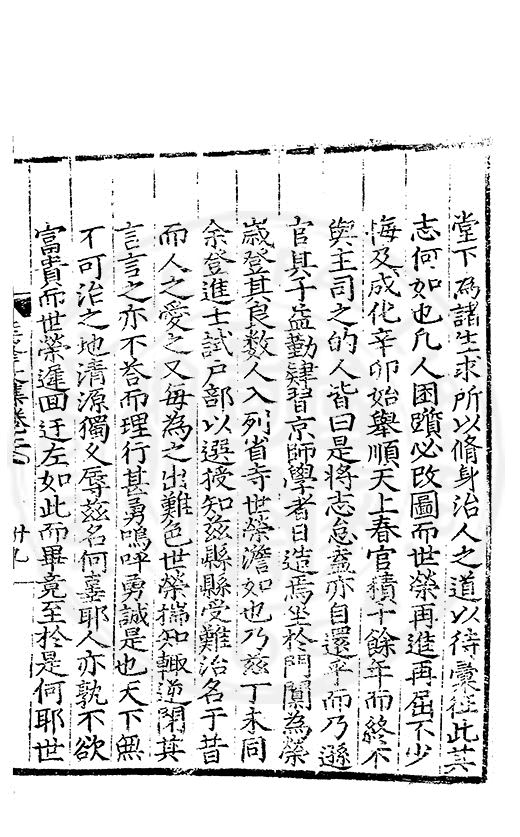 堂下爲諸生求所以脩身治人之道以待彙徃此其
志何如也凡人困躓必改圖而世榮再進再屈不少
悔及成化辛卯始舉順天上春官積十餘年而終不
與主司之的人皆曰是將志怠盍亦自還乎而乃遜
官其子益勤肄習京師學者日造焉坐於門闃為榮
歲登其良数人入列省寺世榮澹如也乃玆丁未同
余登進士試户部以選授知玆縣縣受難治名于昔
而人之愛之又每為之出難色世榮揣知輒逆閉其
言言之亦不荅而理行甚勇嗚呼勇誠是也天下無
不可治之地清源獨久辱玆名何耶人亦孰不欲
富貴而世榮邅囬迂左如此而畢竟至於是何耶世
廿九